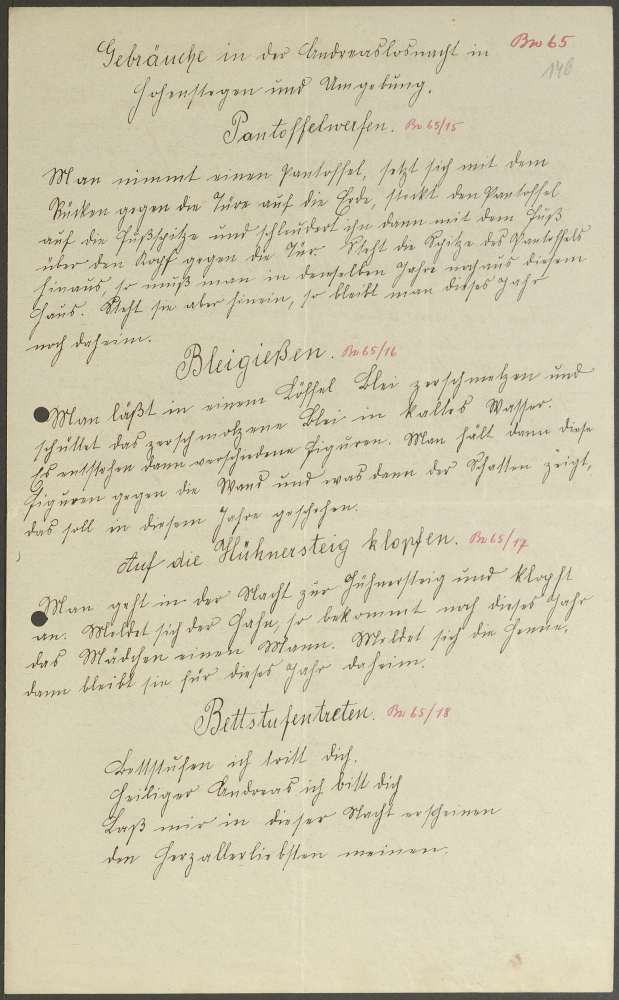 Gebräuche in der Andreaslosnacht in
Bu 65
148
Hohenstegen und Umgebung.
Pantoffelwerfen. Bu 65/15
Man nimmt einen Pantoffel, setzt sich mit dem
Rücken gegen die Türe auf die Erde, steckt den Pantoffel
auf die Fußspitze und schleudert ihn dann mit dem Fuß
über den Kopf gegen die Tür. Steht die Spitze des Pantoffels
hinaus, so muß man in demselben Jahre noch aus diesem
Haus. Steht sie aber hinein, so bleibt man dieses Jahr
noch daheim.
Bleigießen. Bu 65/16
Man läßt in einem Löffel Blei zerschmelzen und
schüttet das zerschmolzene Blei in kaltes Wasser.
Es entstehen dann verschiedene Figuren. Man hält dann diese
Figuren gegen die Wand und was dann der Schatten zeigt,
das soll in diesem Jahre geschehen.
Auf die Hühnersteig klopfen. Bu 65/17
Man geht in der Nacht zur Hühnersteig und klopft
an. Meldet sich der Hahn, so bekommt noch dieses Jahr
das Mädchen einen Mann. Meldet sich die Henne,
dann bleibt sie für dieses Jahr daheim.
Bettstufentreten. Bu 65/18
Bettstufen ich tritt dich,
Heiliger Andreas ich bitt dich
Laß mir in dieser Nacht erscheinen
den Herzallerliebsten meinen.